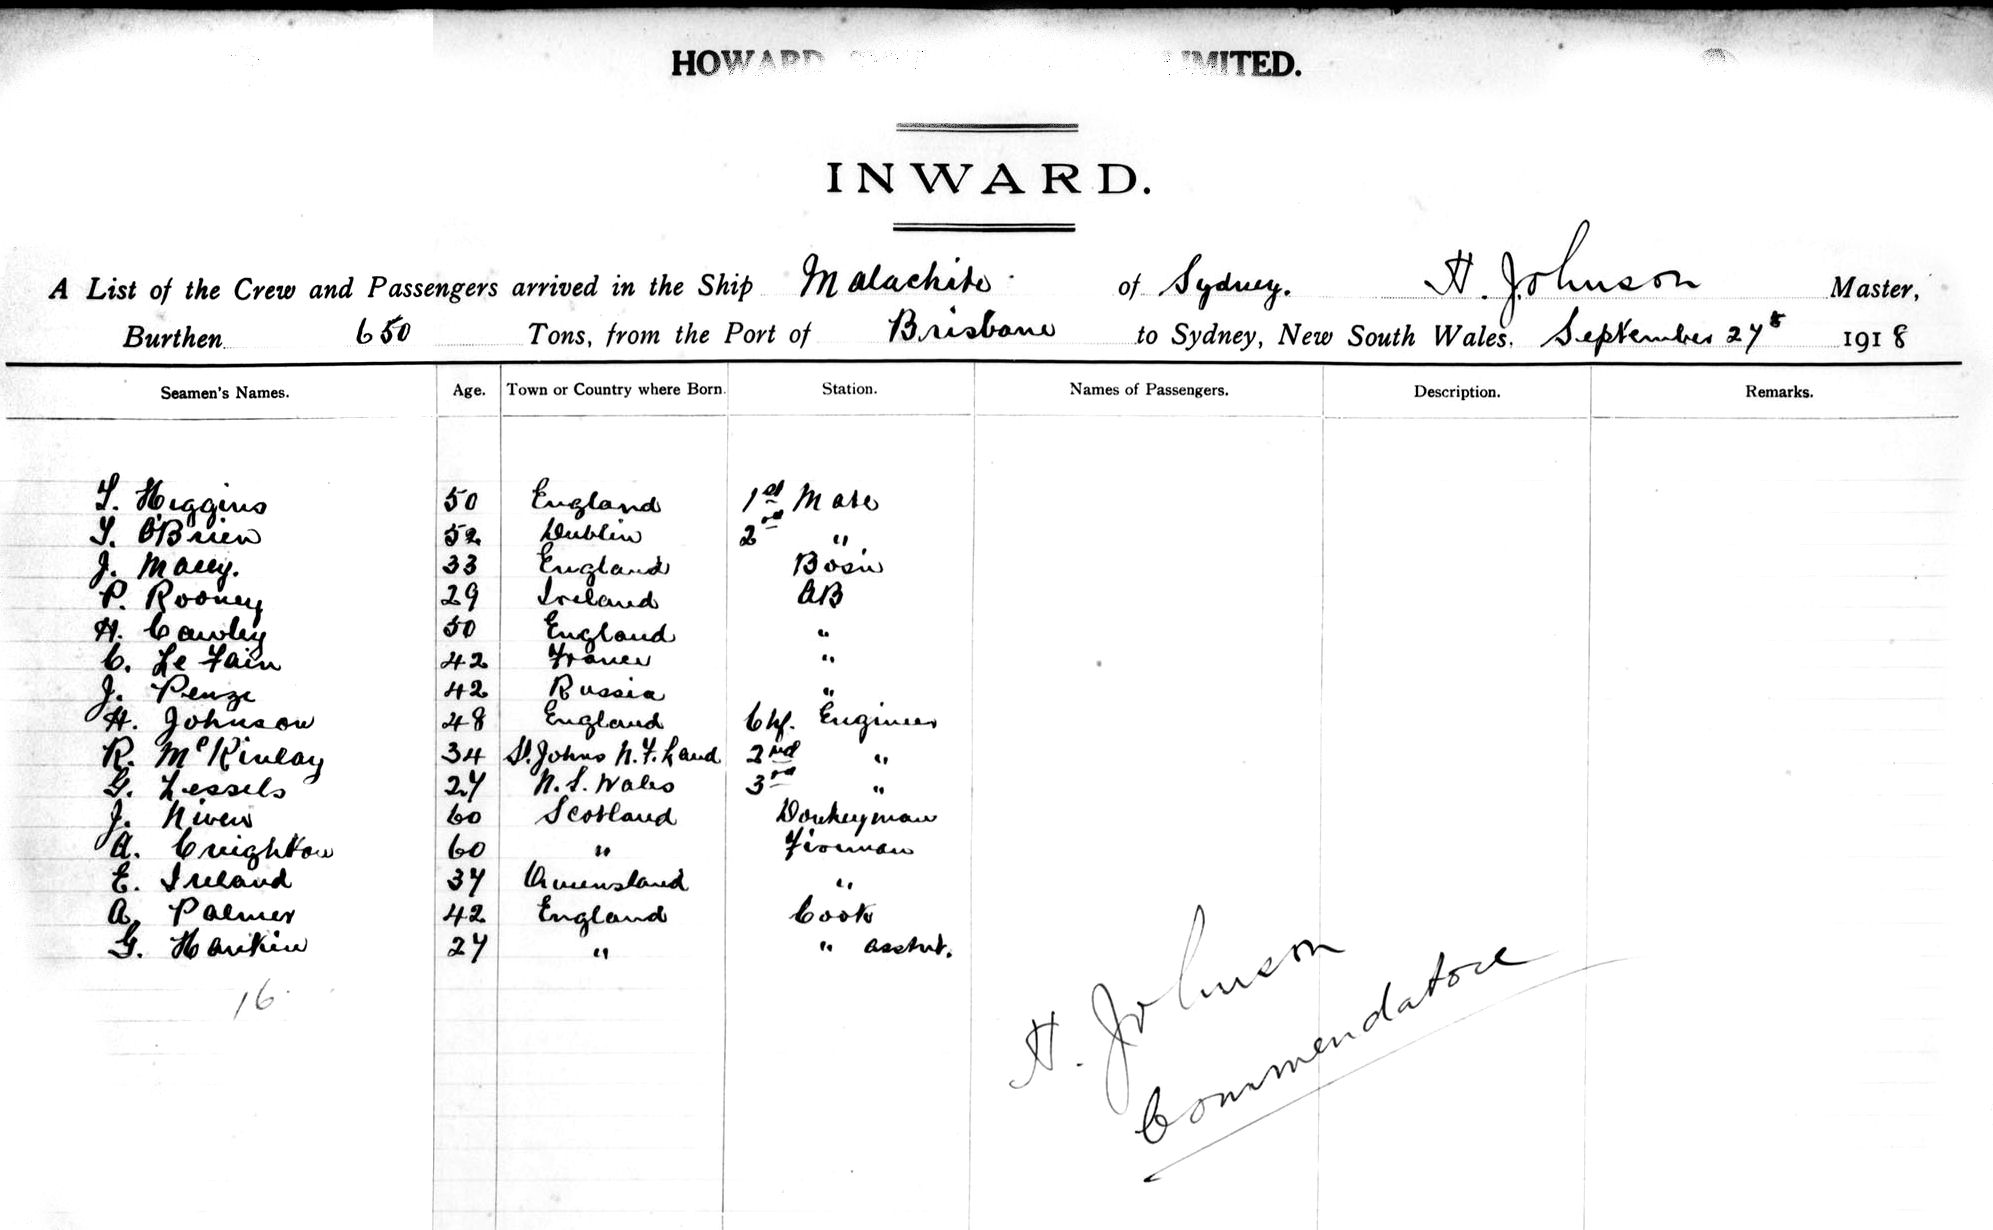 HOWARD LIMITED.
INWARD.
A List of the Crew and Passengers arrived in the Ship Malachite of Sydney. H. Johnson Master,
Burthen 650 Tons, from the Port of Brisbane to Sydney, New South Wales. September 27th 1918
Seamen's Names. Age. Town or Country where Born. Station. Names of Passengers. Description. Remarks.
T. Higgins 50 England 1st Mate
T. O'Brien 52 Dublin 2nd "
J. Macey. 33 England Bosn
P. Rooney 29 Ireland AB
H. Cawley 50 England "
C. Le Fain 42 France "
J. Penze 42 Russia "
H. Johnson 48 England Chf. Engineer
R. McKinlay 34 St. Johns N.F. Land 2nd "
G. Lessels 27 N.S. Wales 3rd "
J. Niven 60 Scotland Donkeyman
A. Creighton 60 " Fireman
E. Ireland 37 Queensland "
A. Palmer 42 England Cook
G. Hankin 27 " " assnt.
16
H. Johnson
Commendatore